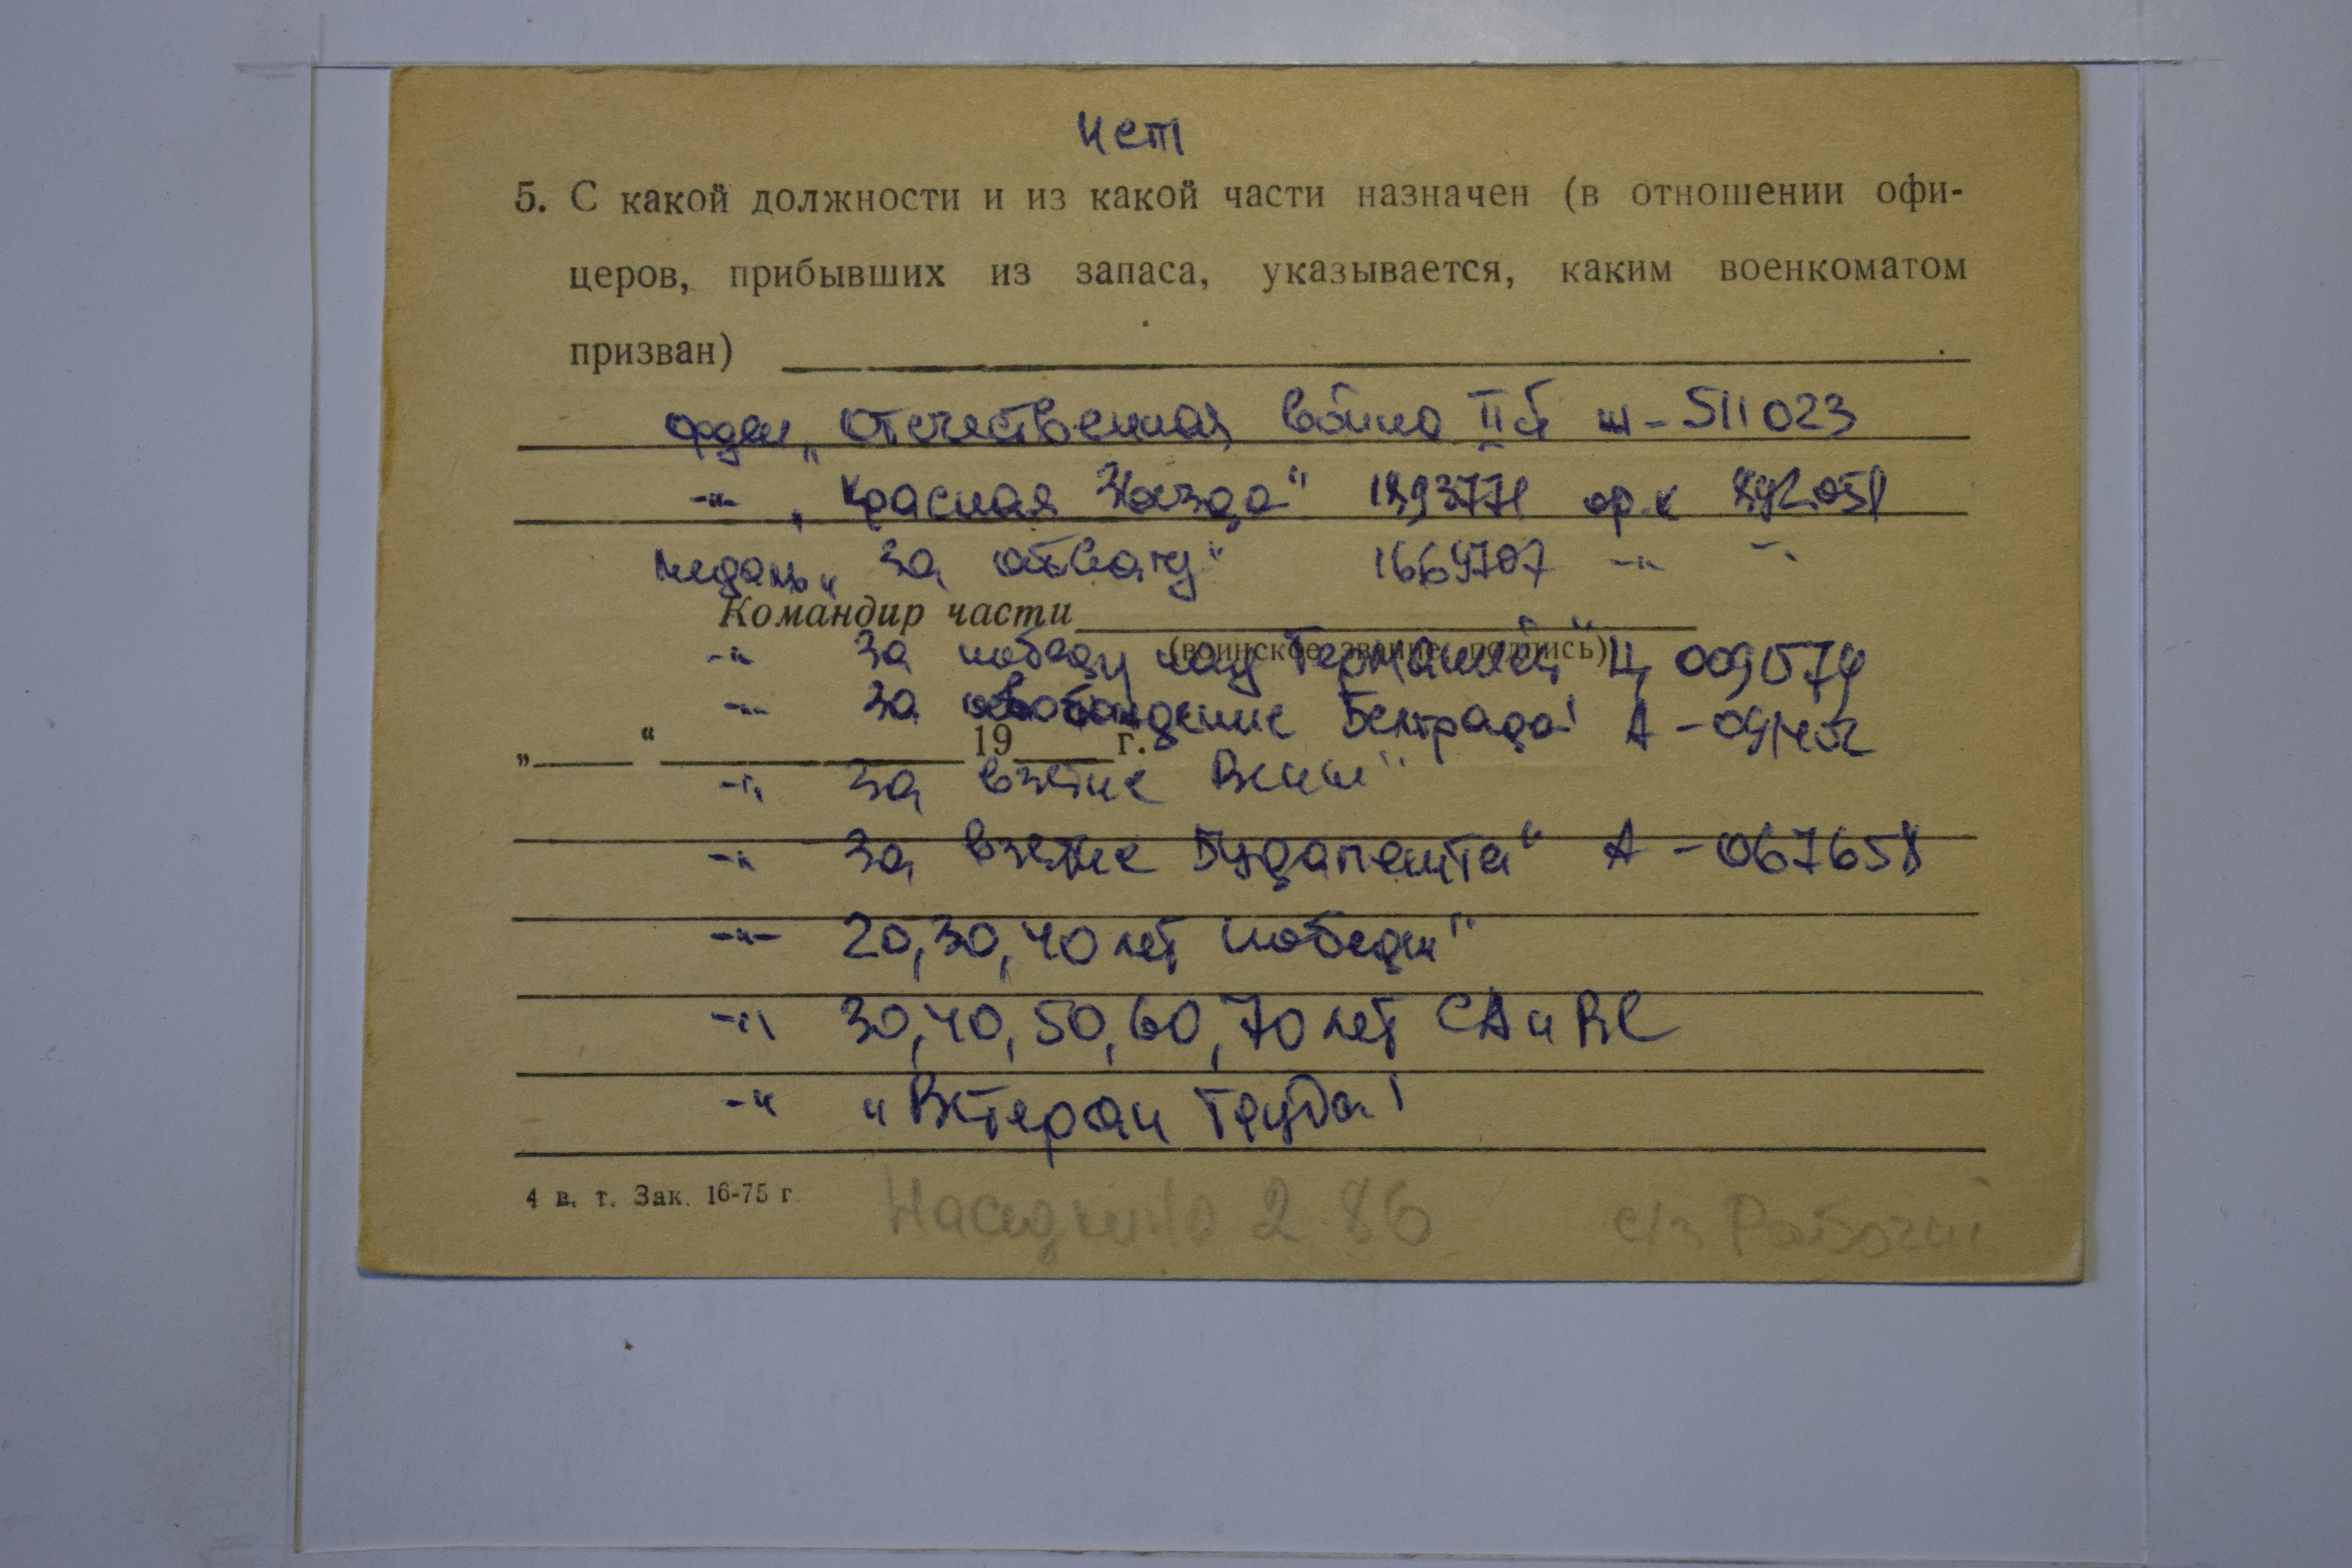 нет
5. С какой должности и из какой части назначен (в отношении офи-
церов, прибывших из запаса, указывается, каким военкоматом
призван)
орден „Отечественная война II ст № - 511023
-"- „Красная Звезда" 1893771 ор. к
медаль „За отвагу" 1664707 -"- -"-
Командир части
(воинское звание, подпись)
-"- За победу над Германией" Ц 0090579
-"- За освобождение Белграда" А -
„ “ 19 г.
-"- За взятие Вены"
-"- За взятие Будапешта" А - 067658
-"- 20, 30, 40 лет победы"
-"- 30, 40, 50, 60, 70 лет СА и ВС
-"- „Ветеран Труда"
4 в. т. Зак. 16-75 г.
2 86 Рабочий